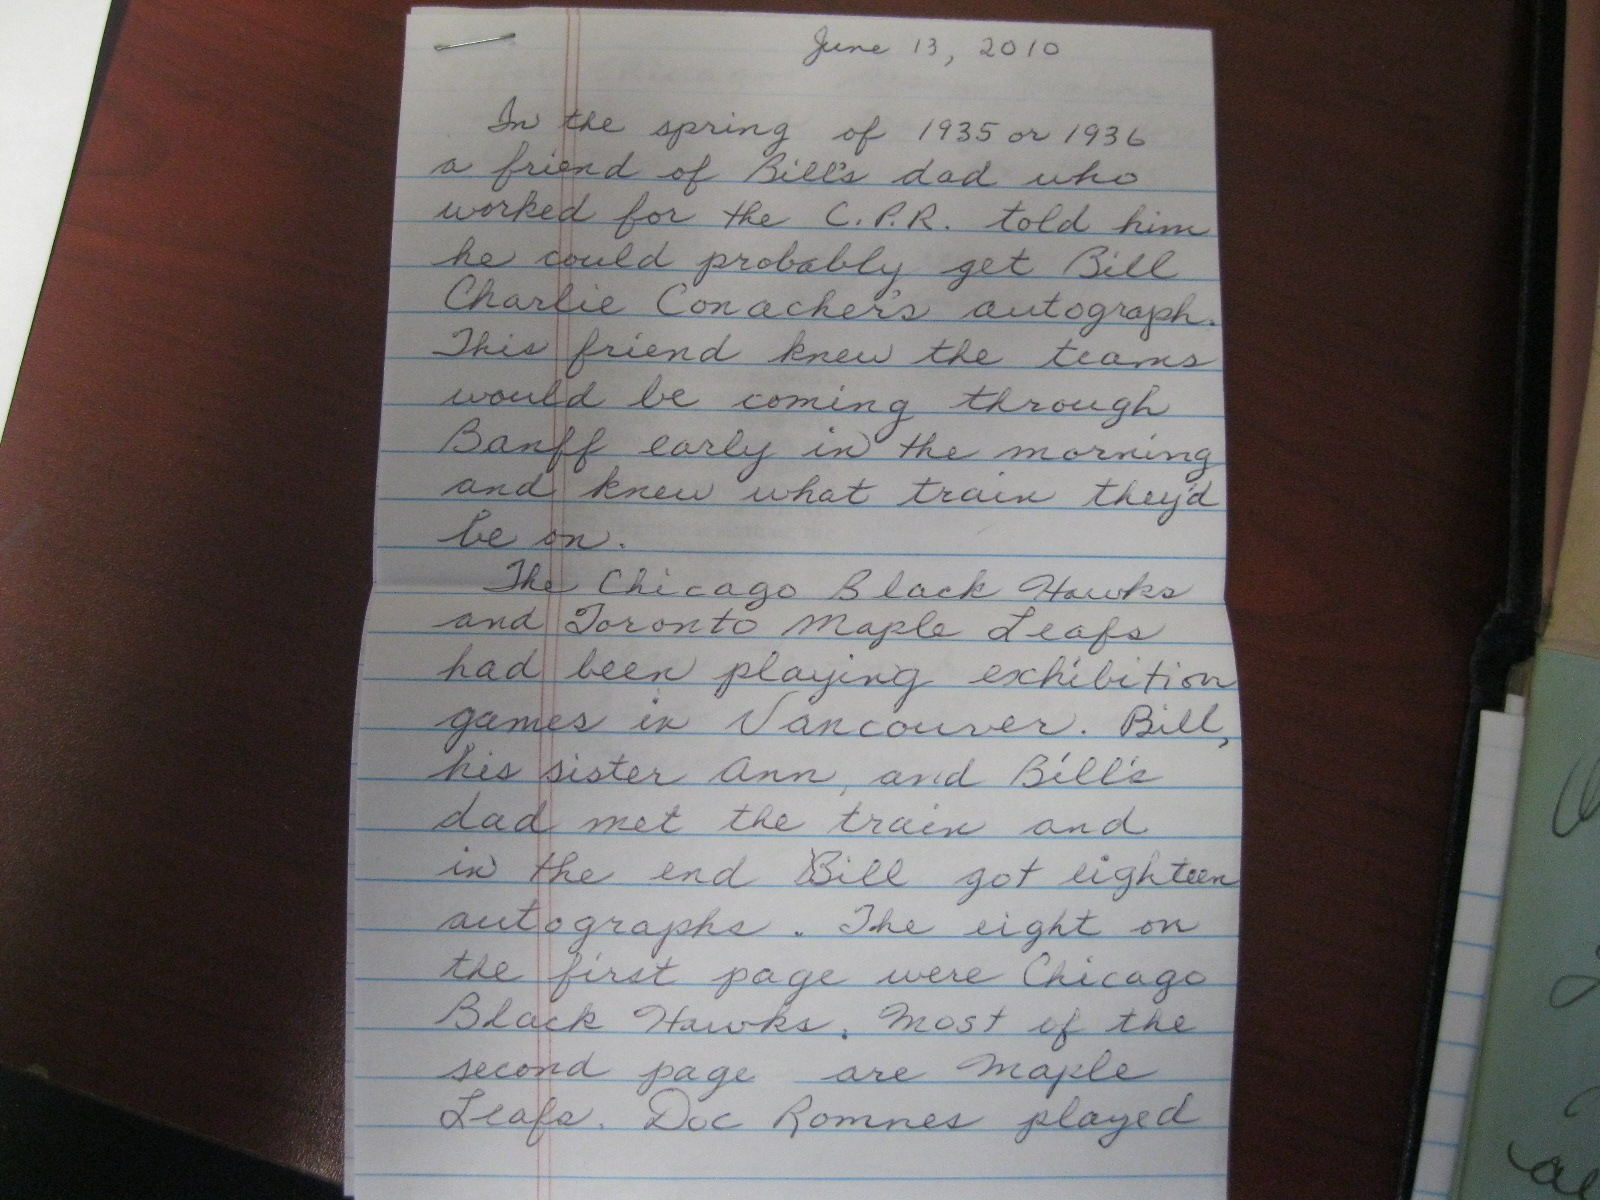 June 13, 2010
In the spring of 1935 or 1936
a friend of Bill's dad who
worked for the C.P.R. told him
he could probably get Bill
Charlie Conacher's autograph.
This friend knew the teams
would be coming through
Banff early in the morning
and knew what train they'd
be on.
The Chicago Black Hawks
and Toronto Maple Leafs
had been playing exhibition
games in Vancouver. Bill,
his sister Ann, and Bill's
dad met the train and
in the end Bill got eighteen
autographs. The eight on
the first page were Chicago
Black Hawks. Most of the
second page are Maple
Leafs. Doc Romnes played